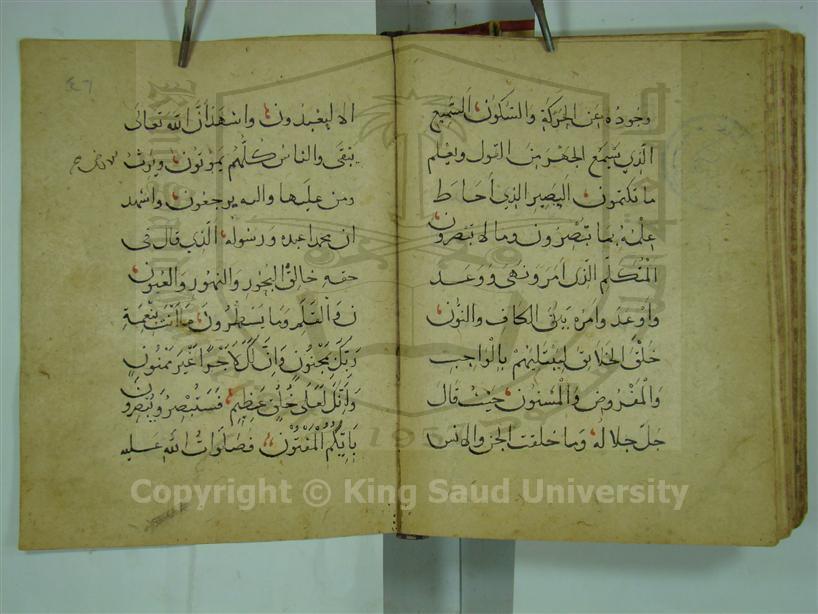 وجوده عن الحركة والسكون السميع
الذي يسمع الجهر من القول ويعلم
ما تكتمون البصير الذي احاط
علمه بما تبصرون وما لا تبصرون
المتكلم الذي امر ونهى ووعد
واوعد وامره بين الكاف والنون
خلق الخلائق ليبتليهم بالواجب
والمفروض والمسنون حيث قال
جل جلاله وما خلقت الجن والانس
الا ليعبدون واشهد ان الله تعالى
يبقى والناس كلهم يموتون ويرث
ومن عليها واليه يرجعون واشهد
ان محمدا عبده ورسوله الذي قال في
حقه خالق البحور والنهور والعيون
ن والقلم وما يسطرون ما انت بنعمة
ربك بمجنون وان لك لاجرا غير ممنون
وانك لعلى خلق عظيم فستبصر ويبصرون
بايكم المفتون فصلوات الله عليه
٤٦
Copyright © King Saud University
195